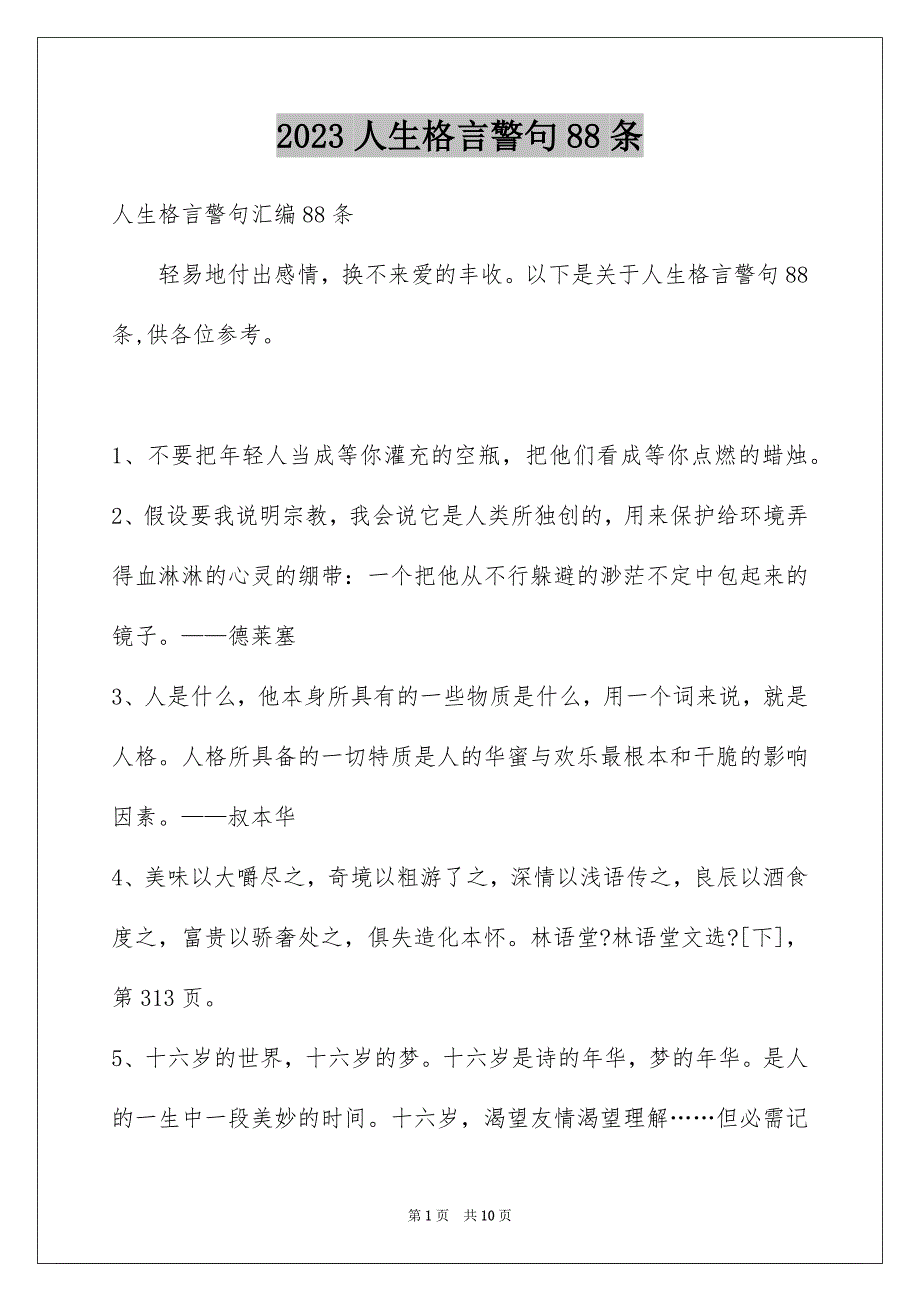 2023人生格言警句88条
人生格言警句汇编88条
轻易地付出感情，换不来爱的丰收。以下是关于人生格言警句88
条,供各位参考。
1、不要把年轻人当成等你灌充的空瓶，把他们看成等你点燃的蜡烛。
2、假设要我说明宗教，我会说它是人类所独创的，用来保护给环境弄
得血淋淋的心灵的绷带：一个把他从不行躲避的渺茫不定中包起来的
镜子。——德莱塞
3、人是什么，他本身所具有的一些物质是什么，用一个词来说，就是
人格。人格所具备的一切特质是人的华蜜与欢乐最根本和干脆的影响
因素。——叔本华
4、美味以大嚼尽之，奇境以粗游了之，深情以浅语传之，良辰以酒食
度之，富贵以骄奢处之，俱失造化本怀。林语堂?林语堂文选?[下]，
第313页。
5、十六岁的世界，十六岁的梦。十六岁是诗的年华，梦的年华。是人
的一生中一段美妙的时间。十六岁，渴望友情渴望理解……但必需记
第1页 共10页